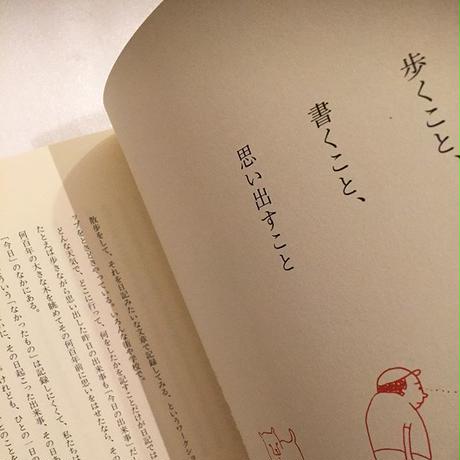 歩くこと、
書くこと、
思い出すこと
散歩をして、それを日記みたいな文章で記録してみる、というワークショ
ップをときどきやっている。いろんな街や学校で。
どんな天気で、どこに行って、何をしたかを記すことだけが日記では
たとえば歩きながら思い出した昨日の出来事も「今日の出来事」だし
何百年の大きな木を眺めてその何百年前に思いをはせたなら、
「今日」のなかにある。
ういう「なかったもの」は記録しにくくて、私たちは
に、その日起こった出来事、その日
けれども、ひとの一日
とのことを